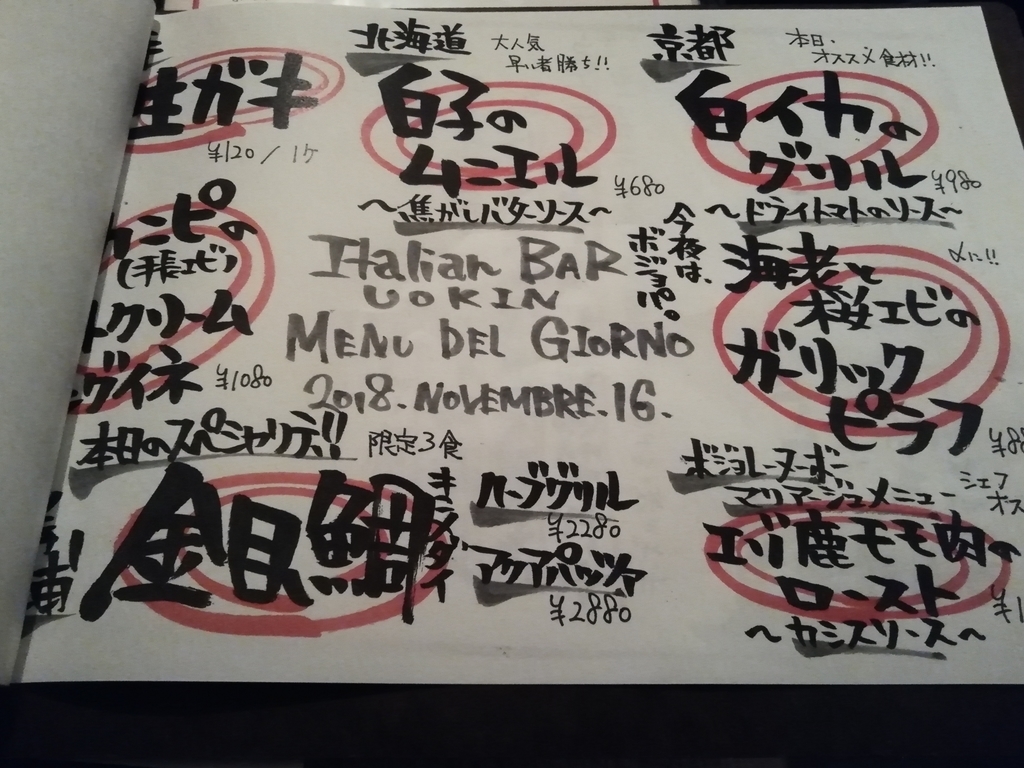 生ガキ
¥120/1ケ
北海道
大人気
早い者勝ち!!
白子の
ムニエル
¥680
～焦がしバターソース～
京都
本日、
オススメ食材!!
白イカの
グリル
¥980
～ドライトマトのソース～
ンピの
(手長エビ)
クリーム
グイネ
¥1080
Italian BAR
UOKIN
MENU DEL GIORNO
2018.NOVEMBRE.16.
今夜は、
ボジョパ。
〆に!!
海老と
桜エビの
ガーリック
ピラフ
本日のスペシャリテ!!
限定3食
金目鯛
キンメダイ
ハーブグリル
¥2280
アクアパッツァ
¥2880
ボジョレーヌーボー
マリアージュメニュー
シェフ
オス
エゾ鹿モモ肉の
ロースト
～カシスソース～